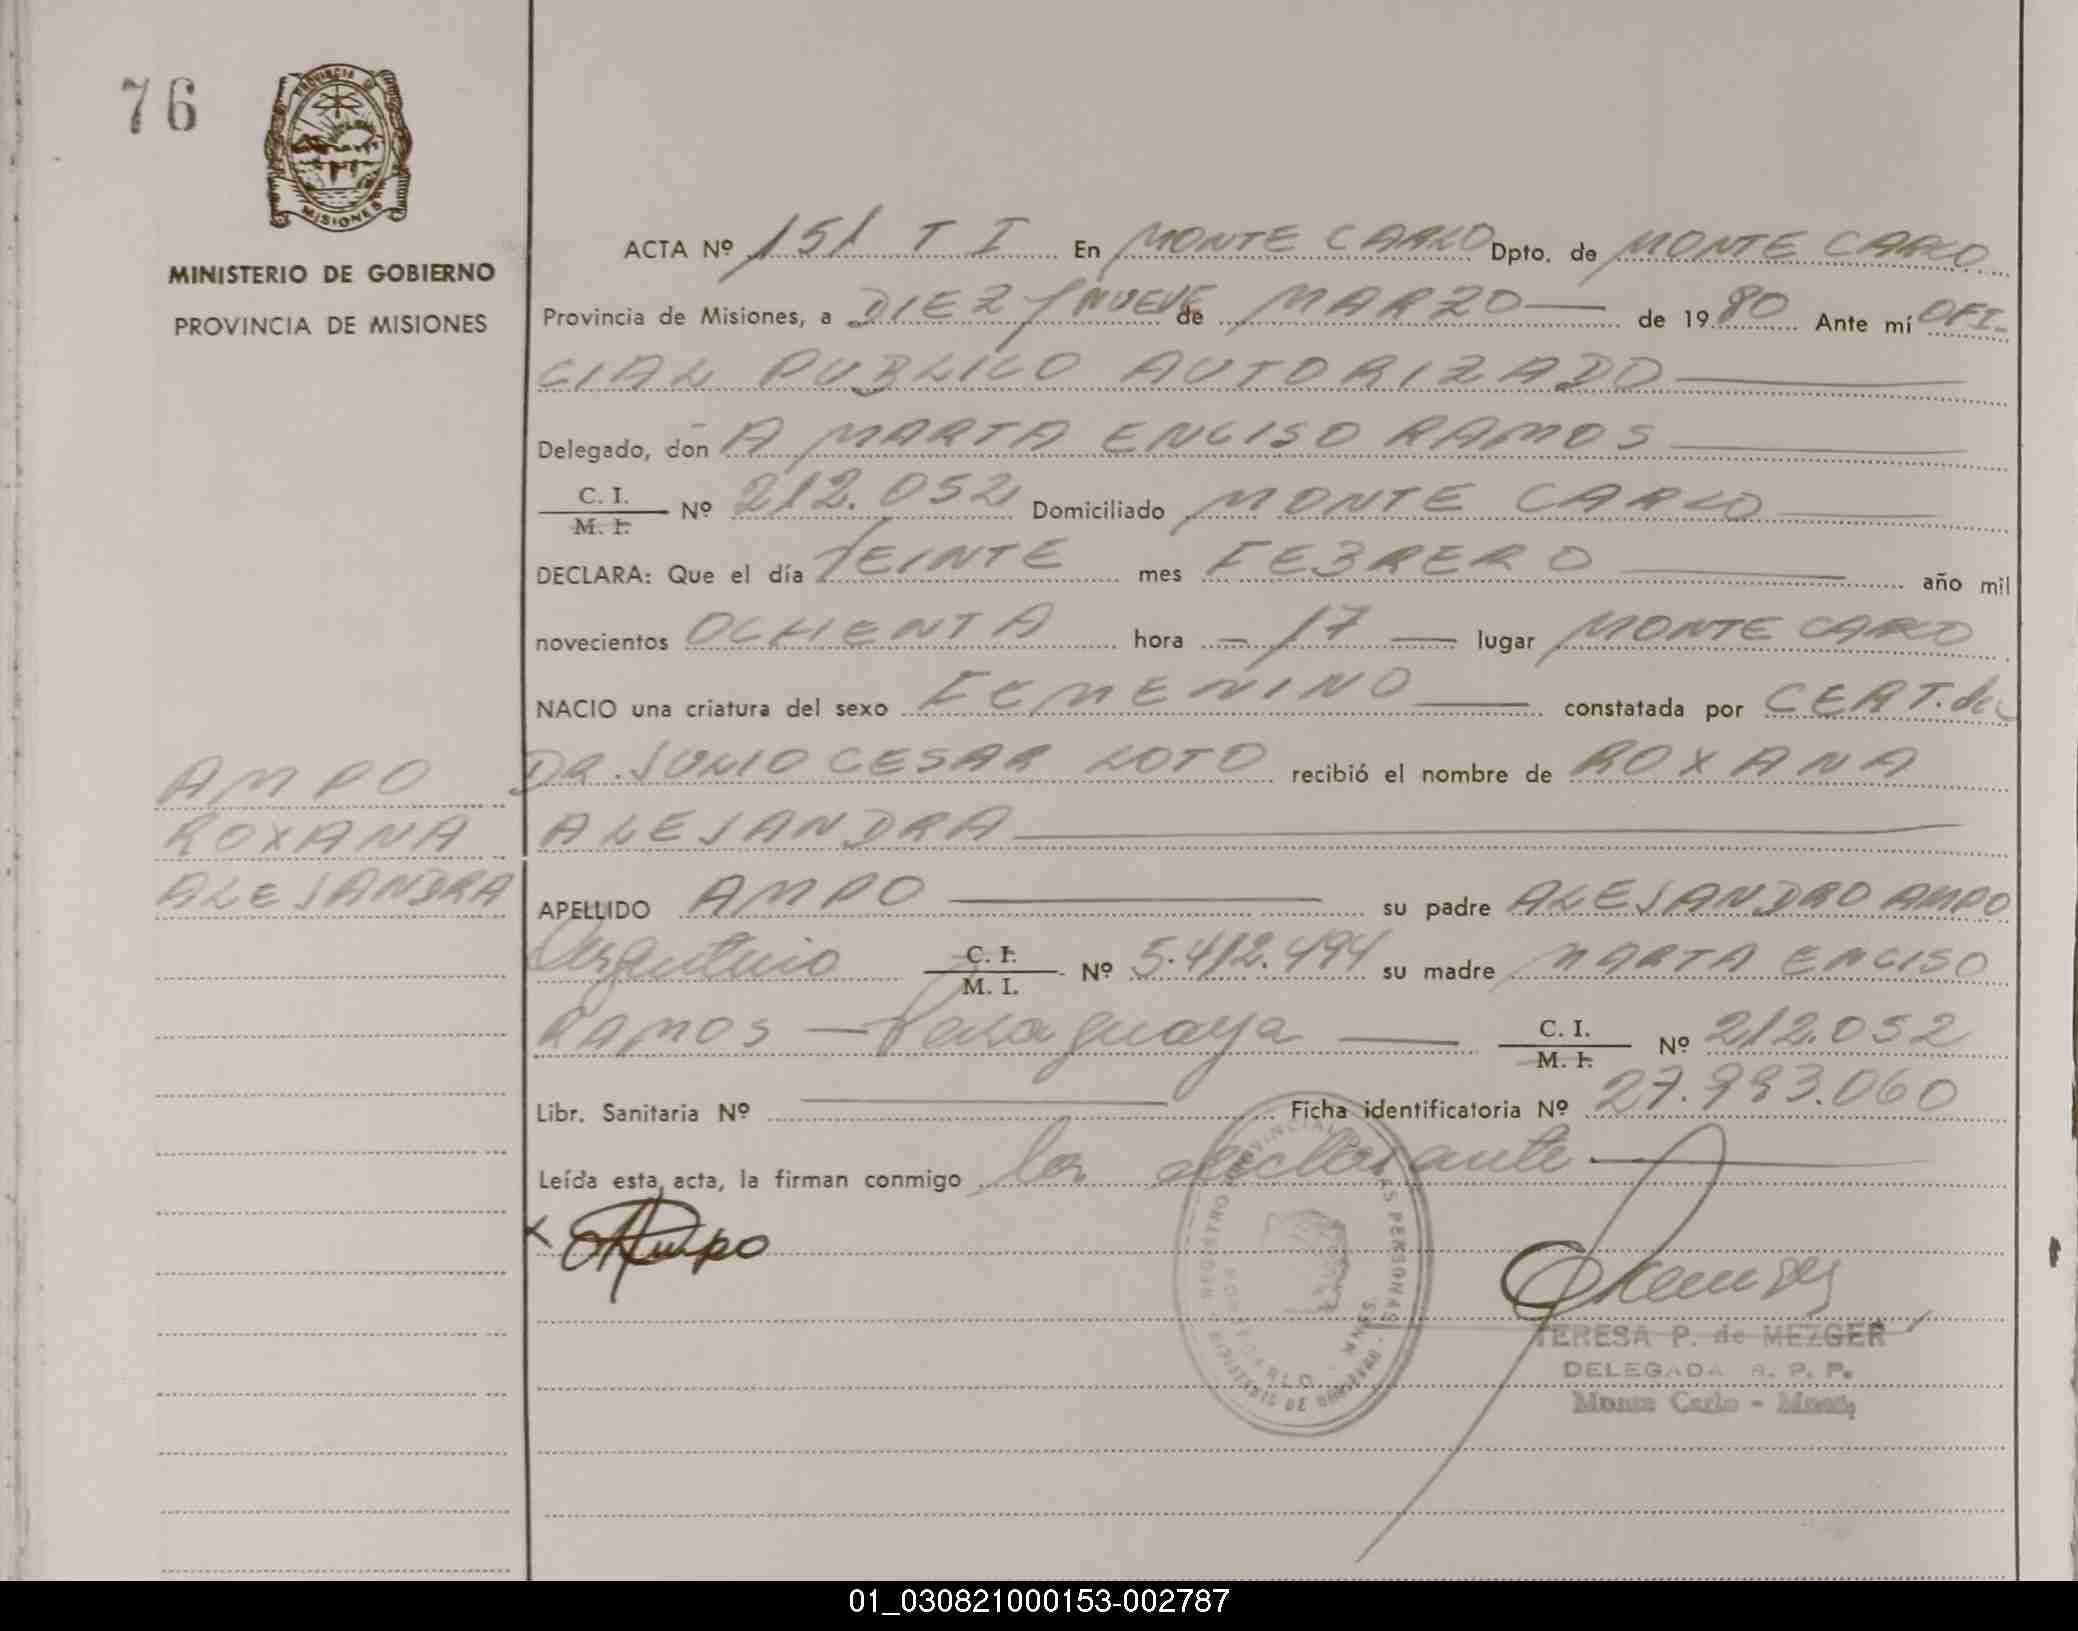 76
PROVINCIA DE
MISIONES
MINISTERIO DE GOBIERNO
PROVINCIA DE MISIONES
ACTA Nº 151 T I En MONTE CARLO Dpto. de MONTE CARLO
Provincia de Misiones, a DIEZ y NUEVE de MARZO de 1980 Ante mí OFI-
CIAL PUBLICO AUTORIZADO
Delegado, don A MARTA ENCISO RAMOS
C. I.
M. I. Nº 212.052 Domiciliado MONTE CARLO
DECLARA: Que el día VEINTE mes FEBRERO año mil
novecientos OCHENTA hora - 17 - lugar MONTE CARLO
NACIO una criatura del sexo FEMENINO constatada por CERT. del
DR. JULIO CESAR LOTO recibió el nombre de ROXANA
ALEJANDRA
AMPO
ROXANA
ALEJANDRA
APELLIDO AMPO su padre ALEJANDRO AMPO
Argentino C. I.
M. I. Nº 5.412.494 su madre MARTA ENCISO
RAMOS - Paraguaya C. I.
M. I. Nº 212.052
Libr. Sanitaria Nº Ficha identificatoria Nº 27.993.060
Leída esta acta, la firman conmigo los declarante
x Ampo
REGISTRO PROVINCIAL DE LAS PERSONAS
MINISTERIO DE GOBIERNO
MONTECARLO - MNES.
TERESA P. de MEZGER
DELEGADA R. P. P.
Monte Carlo - Mnes.
01_030821000153-002787